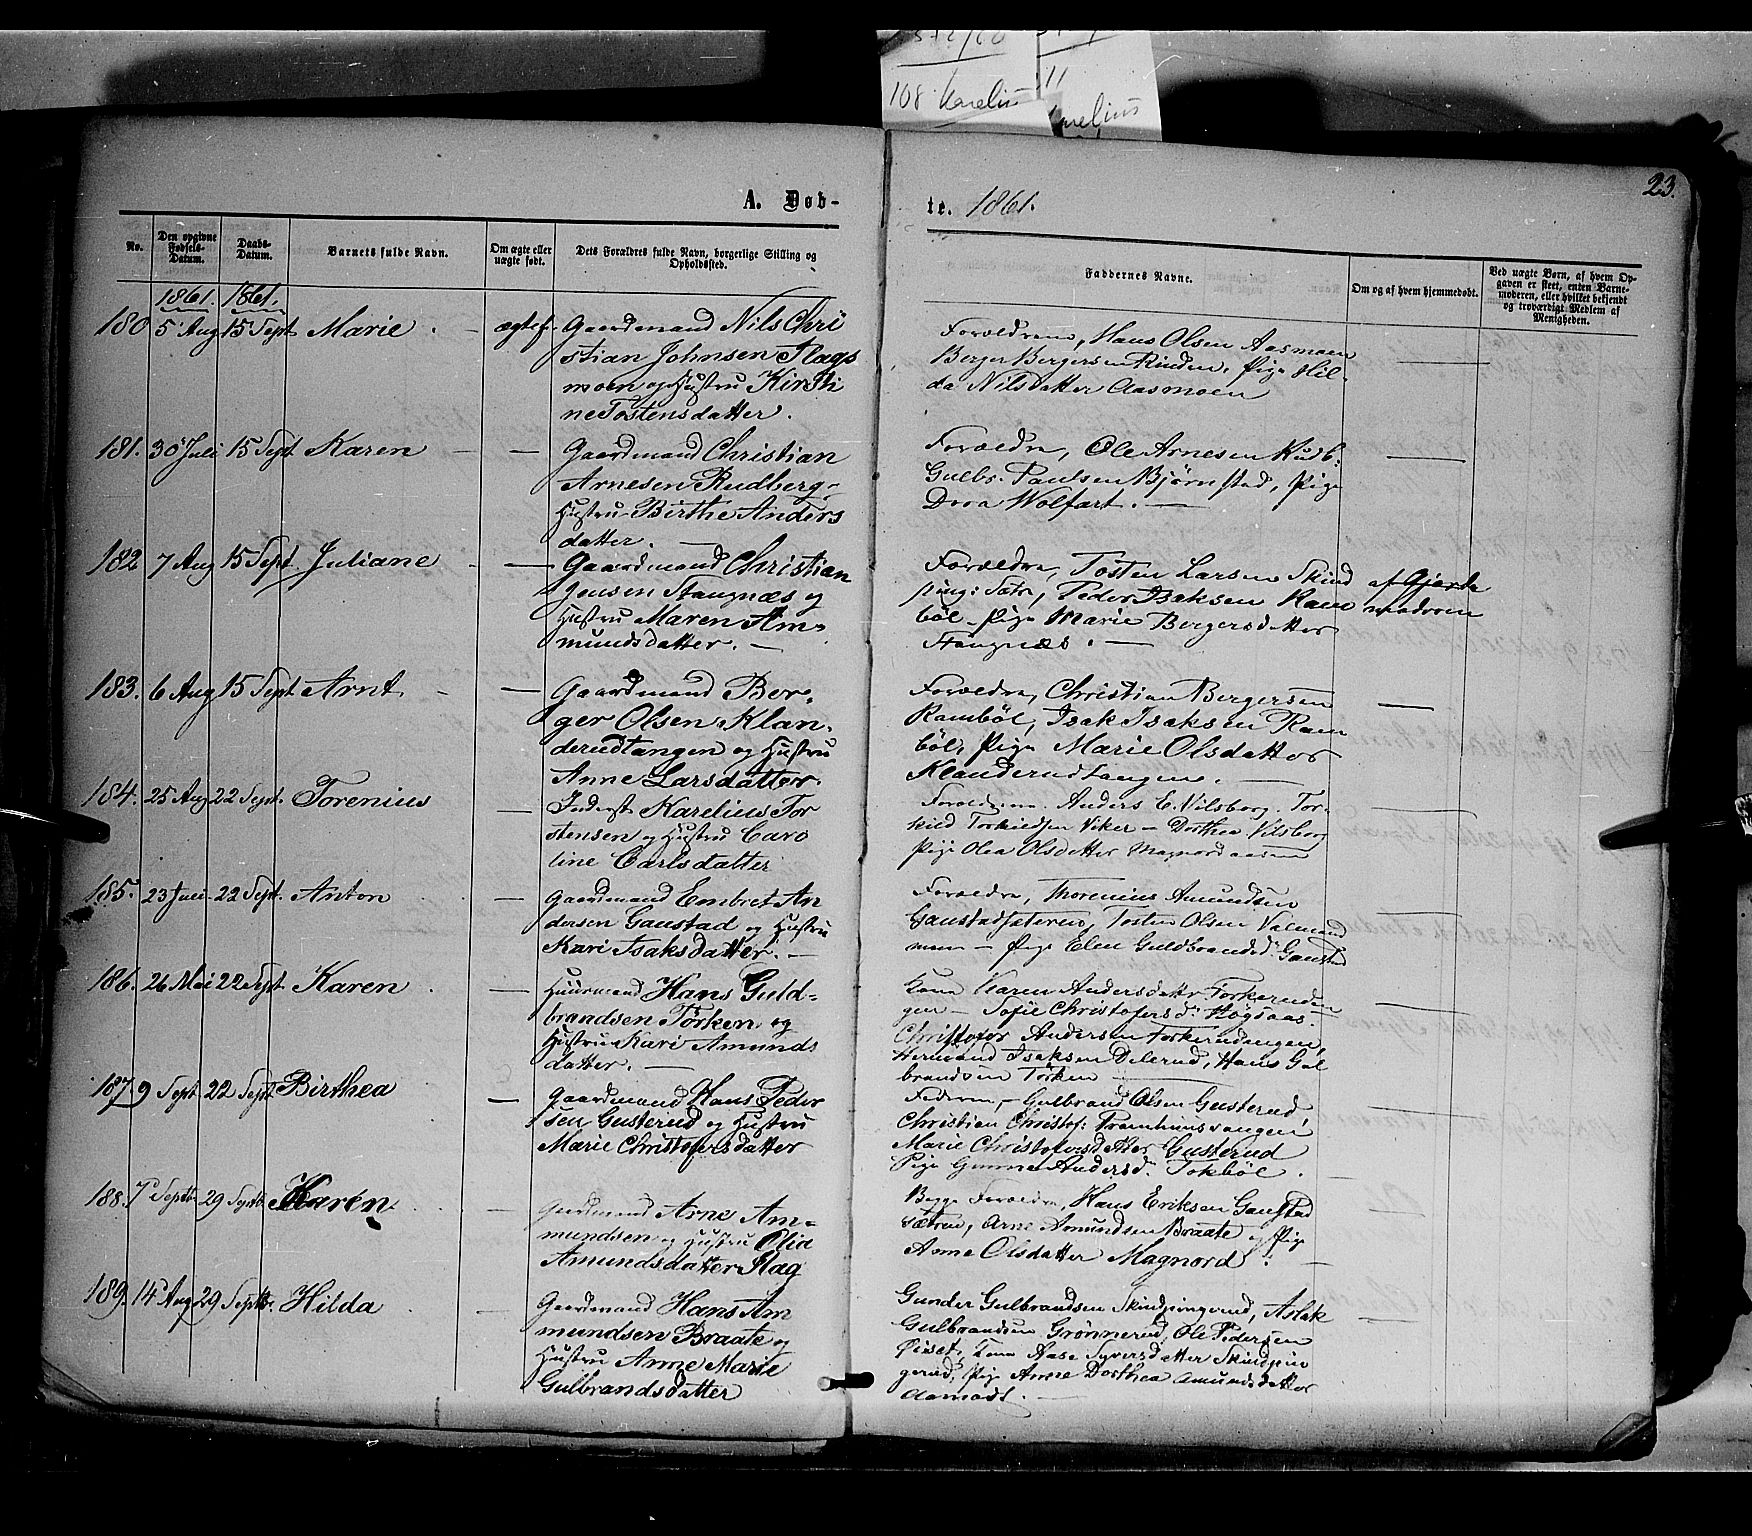 108 Karelius
11
nelius
23.
A. Døb-
te. 1861.
No.
Den opgivne Fødsels-Datum.
Daabs-Datum.
Barnets fulde Navn.
Om ægte eller uægte født.
Dets Forældres fulde Navn, borgerlige Stilling og Opholdssted.
Faddernes Navne.
Om og af hvem hjemmedøbt.
Ved uægte Børn, af hvem Op-
gaven er skeet, enten Barne-
moderen, eller hvilket bekjendt
og troværdigt Medlem af
Menigheden.
1861. 1861.
180 5 Aug 15 Sept Marie ægtef. Gaardmand Nils Chri
stian Johnsen Flags
moen og Hustru Kirsti
ne Tostensdatter.
Forældrene, Hans Olsen Aasmoen
Berger Bergersen Rinden, Pige Hil-
da Nilsdatter Aasmoen
181. 30 Juli 15 Sept Karen - Gaardmand Christian
Arnesen Rudberg,
Hustru Birthe Anders
datter.
Forældre, Ole Arnesen Rudb:
Gulbr. Paulsen Bjørnstad, Pige
Dora Wolfart.
182 7 Aug 15 Sept. Juliane - Gaardmand Christian
Jensen Stangnæs og
Hustru Maren Am-
mundsdatter.
Forældre, Tosten Larsen Skind
ping: Sætr, Peder Isaksen Ram
böl, Pige Marie Bergersdatter
Stangnæs.
af Gjorde
modren
183. 6 Aug 15 Sept Arnt. - Gaardmand Ber-
ger Olsen Klan-
derudtangen og Hustru
Anne Larsdatter.
Forældre, Christian Bergersen
Ramböl, Isak Isaksen Ram
böl, Pige Marie Olsdatter
Klanderudtangen.
184. 25 Aug 22 Sept. Torenius - Inderst Karelius Tor
stensen og Hustru Caro
line Carlsdatter
Forældrene. Anders E. Vilsborg. Tor-
kild Torkildsen Viker - Dorthea Vilsborg
Pige Olea Olsdatter Magnordaasen
185. 23 Juli 22 Sept. Anton - Gaardmand Embret An
dersen Gaustad og Hustru
Kari Isaksdatter.
Forældre, Thorenius Amundsen
Gaustadsæteren, Tosten Olsen Valmand
moen - Pige Elen Guldbrandsd: Gaustad
186. 26 Mai 22 Sept Karen - Huusmand Hans Guld-
brandsen Törken og
Hustru Kari Amunds
datter.
Kone Karen Andersdattr Torkeruden
gen - Sofie Christofersd: Högsaas.
Christofer Andersen Torkerudengen,
Hermand Isaksen Delerud, Hans Gul
brandsen Törken
187 9 Sept 22 Sept Birthea - Gaardmand Hans Peder
sen Gusterud og Hustru
Marie Christofersdatter
Faderen, - Gulbrand Olsen Gusterud
Christian Christof: Pramhuusvangen
Marie Christofersdatter Gusterud
Pige Gunne Andersd. Tokböl.
188. 7 Septbr 29 Septb Karen - Gardmand Arne Am-
mundsen og Hustru Olia
Amundsdatter Flag
Begge Forældre, Hans Eriksen Gaustad
Sætren, Arne Amundsen Braate og Pige
Anne Olsdatter Magnord.
189. 14 Aug 29 Septb. Hilda - Gaardmand Hans Am
mundsen Braate og
Hustru Anne Marie
Gulbrandsdatter
Gunder Gulbrandsen Skindpingrud, Aslak
Gulbrandsen Grönnerud, Ole Pedersen
Öiset, Kone Aase Syversdatter Skindpin
gerud, Pige Anne Dorthea Amundsdatter
Aamodt.